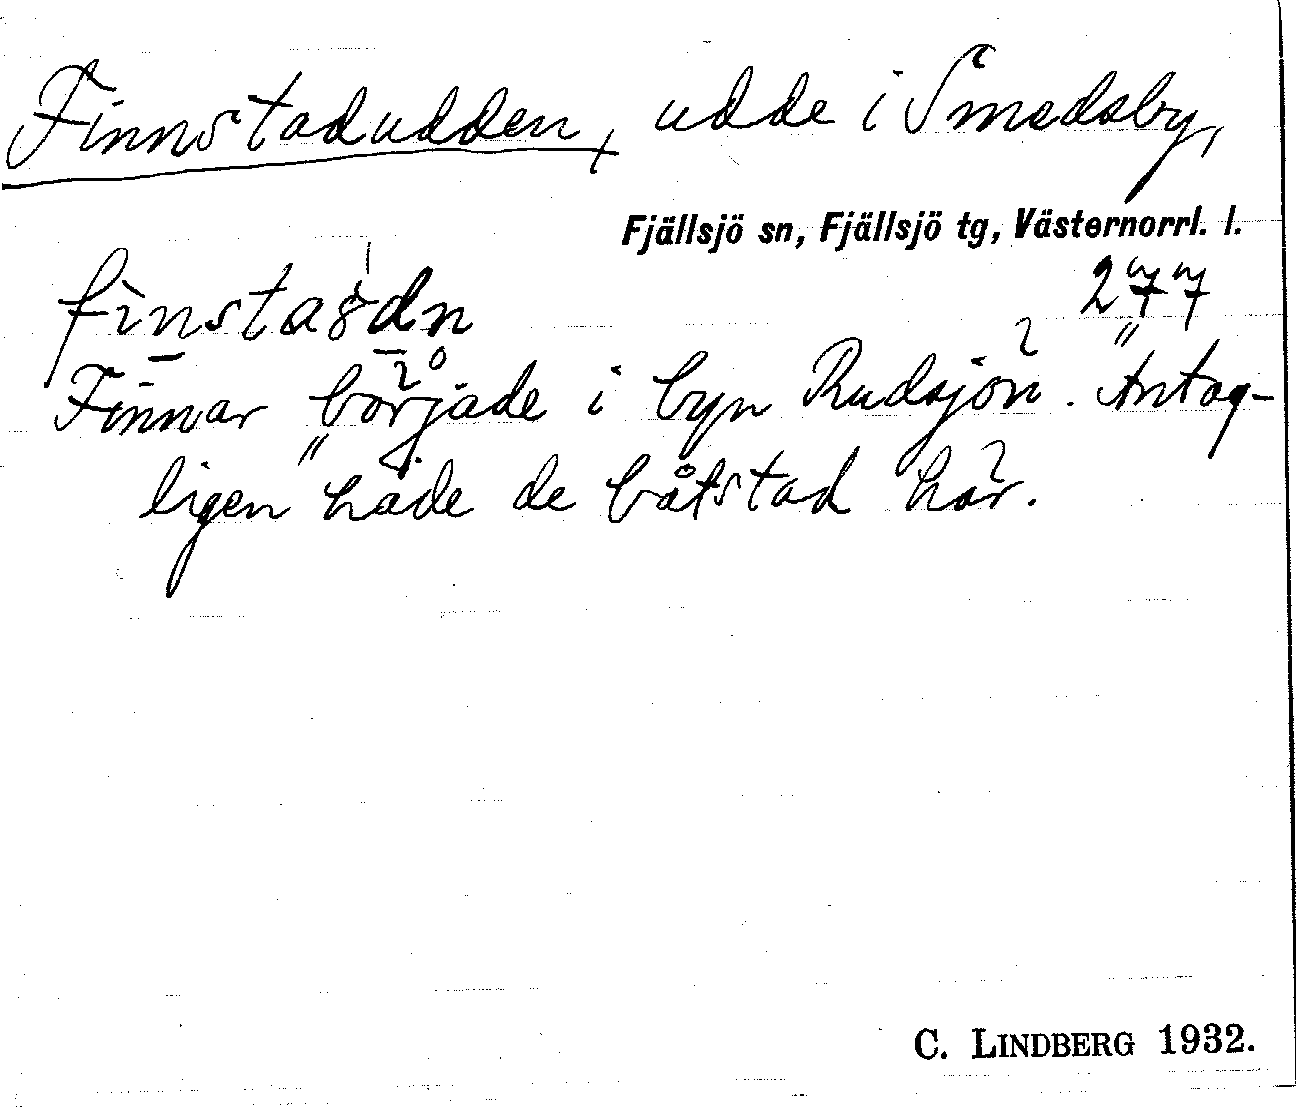 Finnstadudden, udde i Smedsby,
Fjällsjö sn, Fjällsjö tg, Västernorrl. l.
277
Finnar började i byn Rudsjön. Antag-
ligen hade de båtstad här.
C. LINDBERG 1932.